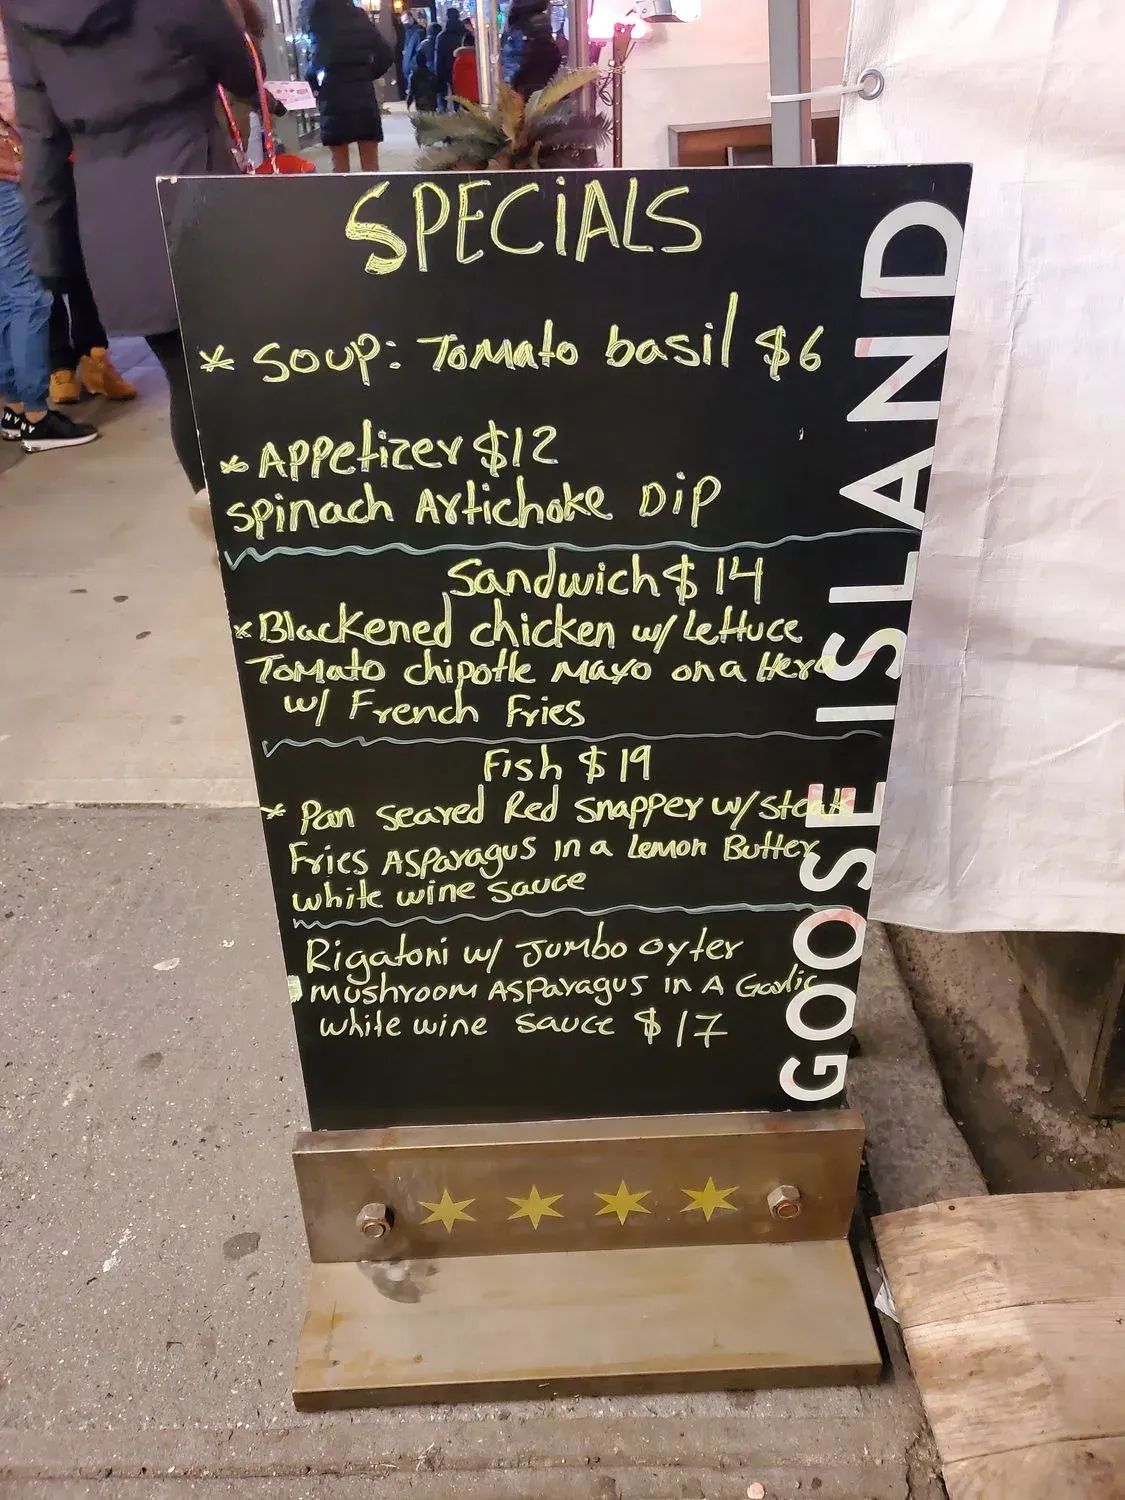 SPECiALS
* Soup: Tomato basil $6
* Appetizer $12
Spinach Artichoke Dip
Sandwich $14
* Blackened chicken w/ Lettuce
Tomato chipotle Mayo on a Hero
w/ French Fries
Fish $19
* Pan seared Red Snapper w/ steak
Fries Asparagus in a Lemon Butter
white wine sauce
Rigatoni w/ Jumbo oyter
mushroom Asparagus in A Garlic
white wine sauce $17
GOOSE ISLAND